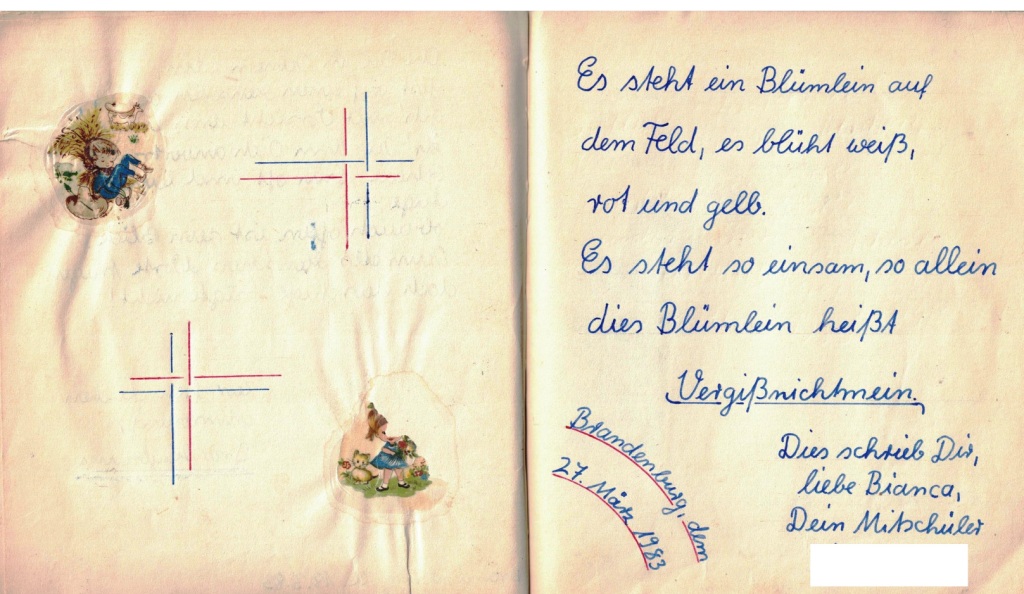 Es steht ein Blümlein auf
dem Feld, es blüht weiß,
rot und gelb.
Es steht so einsam, so allein
dies Blümlein heißt
Vergißnichtmein.
Brandenburg, dem
27. März 1983
Dies schrieb Dir,
liebe Bianca,
Dein Mitschüler